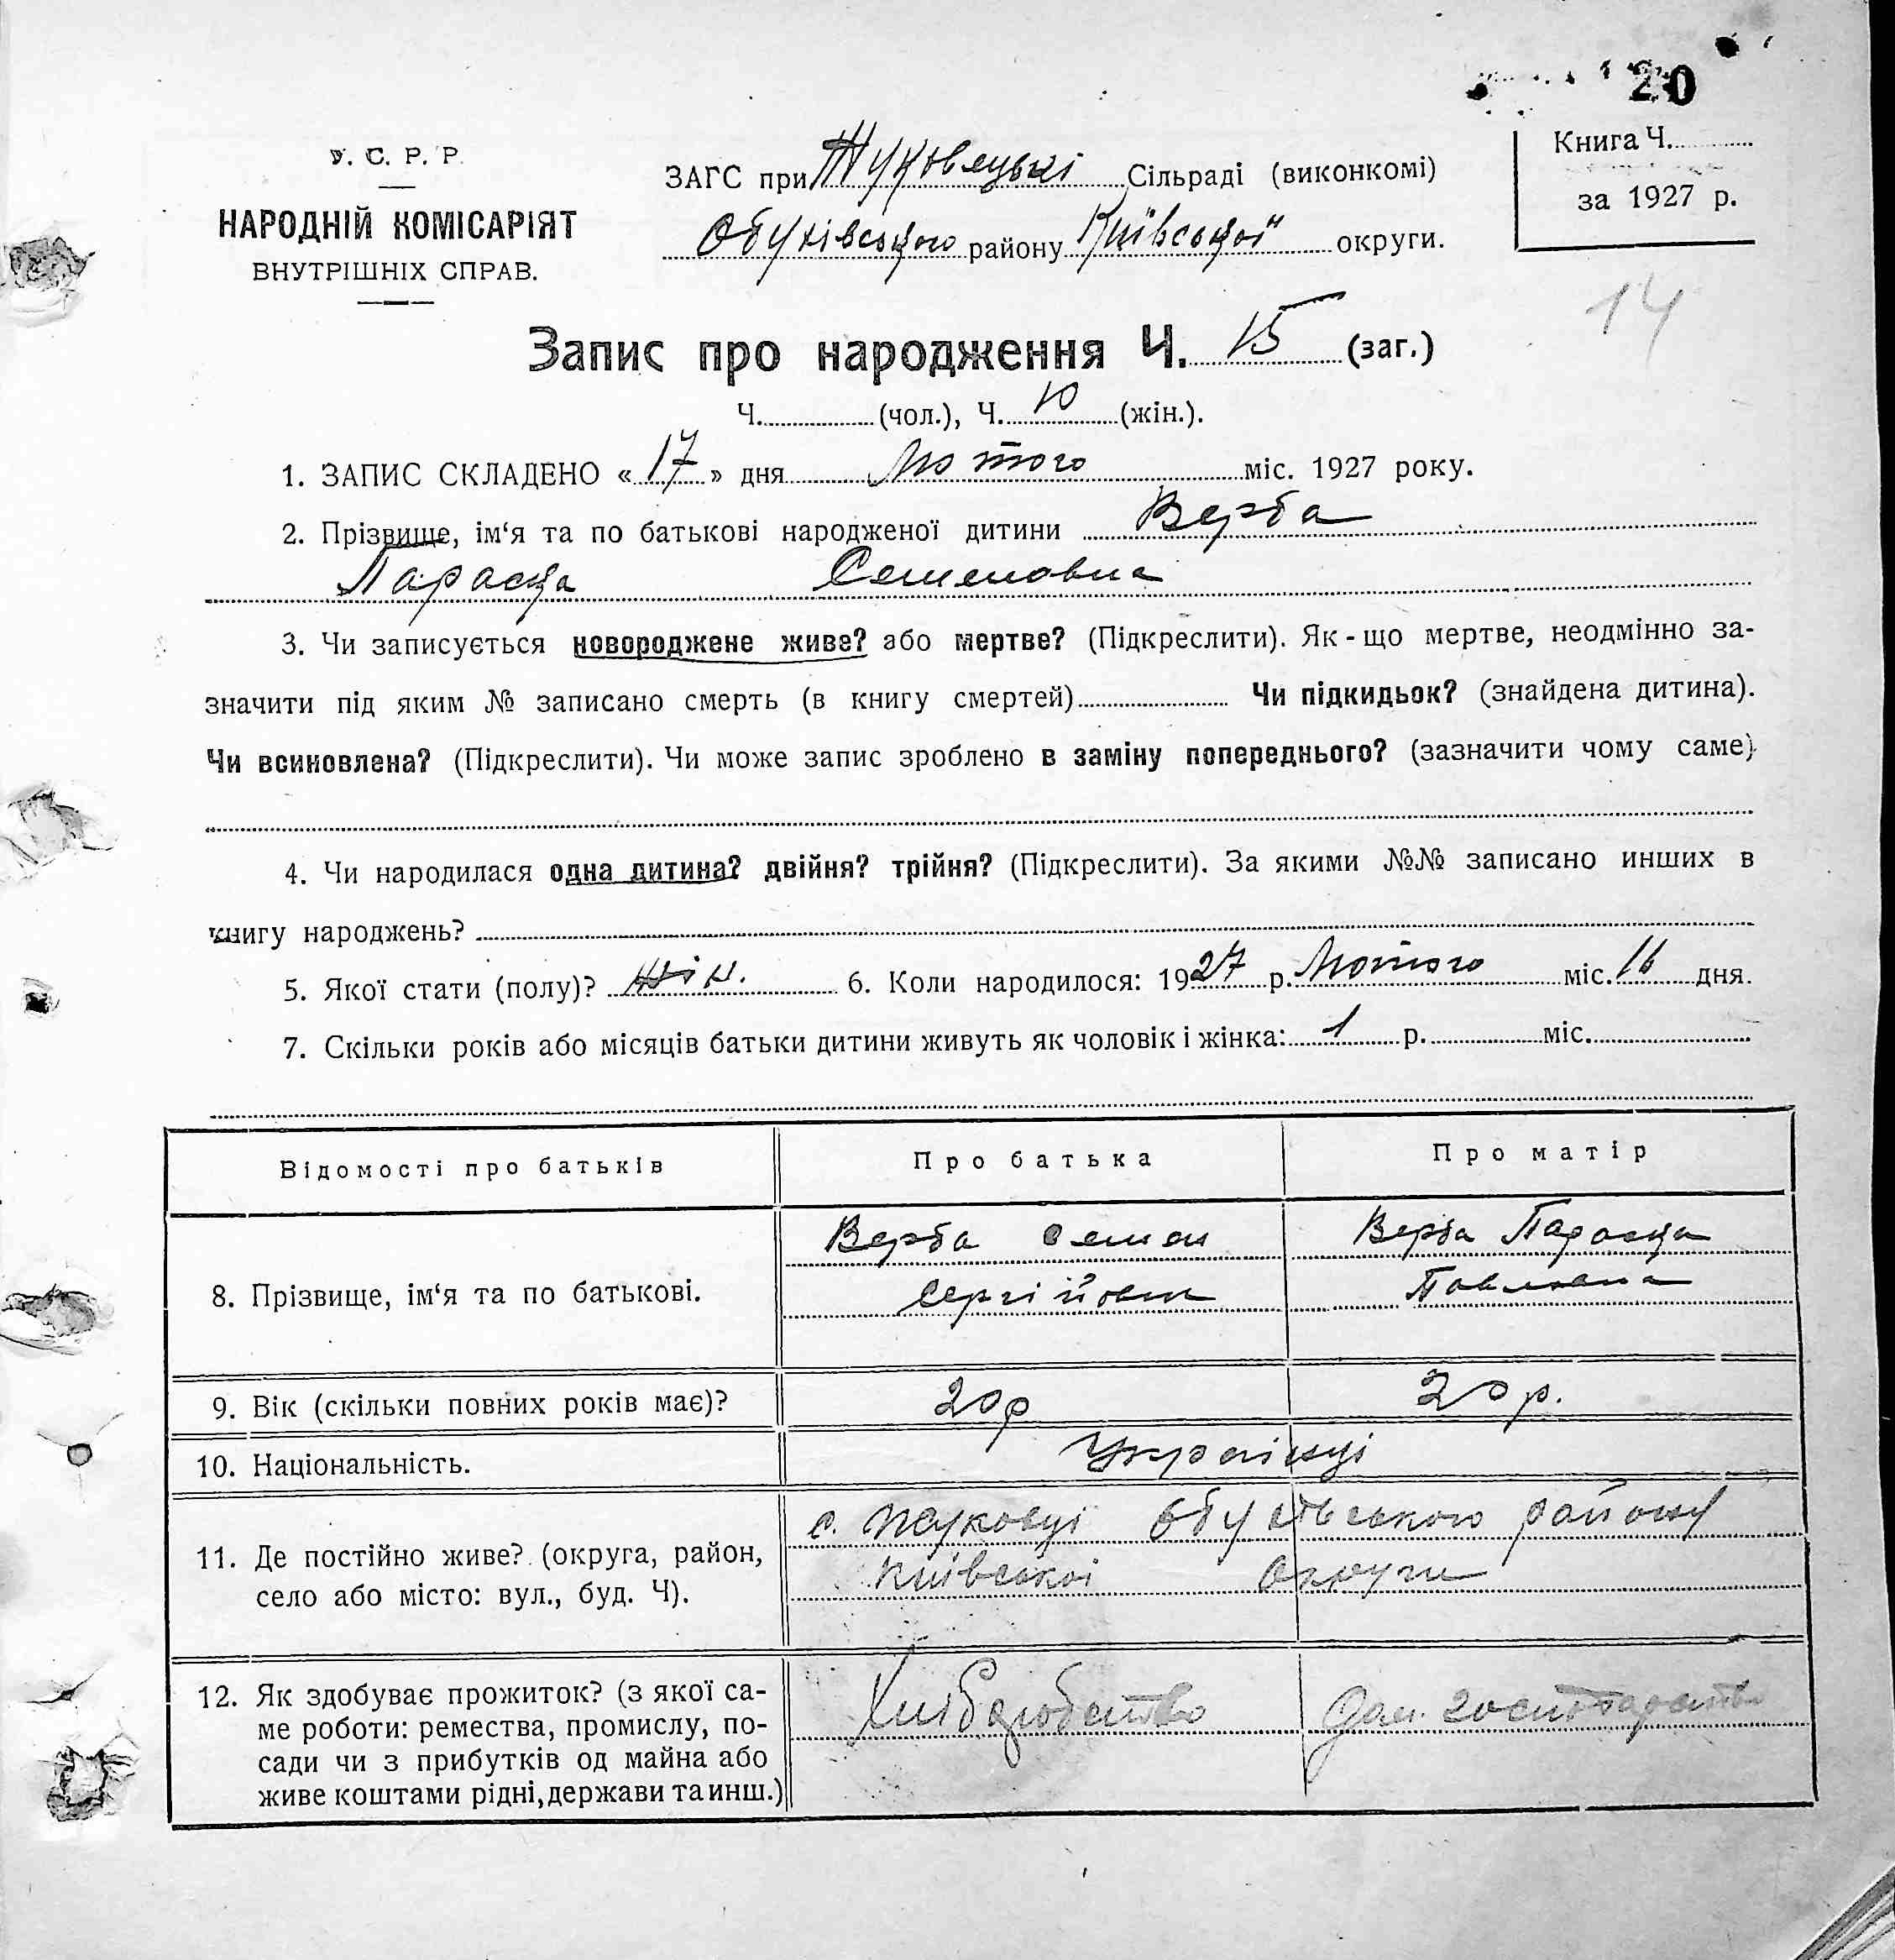 20
У. С. Р. Р.
НАРОДНІЙ КОМІСАРІЯТ
ВНУТРІШНІХ СПРАВ.
ЗАГС при Жуковецькі Сільраді (виконкомі)
Обухівського району Київської округи.
Книга Ч.
за 1927 р.
14
Запис про народження Ч. 15 (заг.)
Ч. (чол.), Ч. 10 (жін.).
1. ЗАПИС СКЛАДЕНО « 17 » дня Лютого міс. 1927 року.
2. Прізвище, ім‘я та по батькові народженої дитини Верба
Параска Семеновна
3. Чи записується новороджене живе? або мертве? (Підкреслити). Як-що мертве, неодмінно за-
значити під яким № записано смерть (в книгу смертей) Чи підкидьок? (знайдена дитина).
Чи всиновлена? (Підкреслити). Чи може запис зроблено в заміну попереднього? (зазначити чому саме)
4. Чи народилася одна дитина? двійня? трійня? (Підкреслити). За якими №№ записано инших в
книгу народжень?
5. Якої стати (полу)? жін. 6. Коли народилося: 1927 р. Лютого міс. 16 дня.
7. Скільки років або місяців батьки дитини живуть як чоловік і жінка: 1 р. міс.
Відомості про батьків Про батька Про матір
8. Прізвище, ім‘я та по батькові.
Верба Семен
Сергійович
Верба Параска
Павловна
9. Вік (скільки повних років має)? 20 р 20 р.
10. Національність. Українці
11. Де постійно живе? (округа, район,
село або місто: вул., буд. Ч).
с. Жуковці Обухівського району
Київської Округи
12. Як здобуває прожиток? (з якої са-
ме роботи: ремества, промислу, по-
сади чи з прибутків од майна або
живе коштами рідні, держави та инш.)
Хліборобство
Дом. господарство